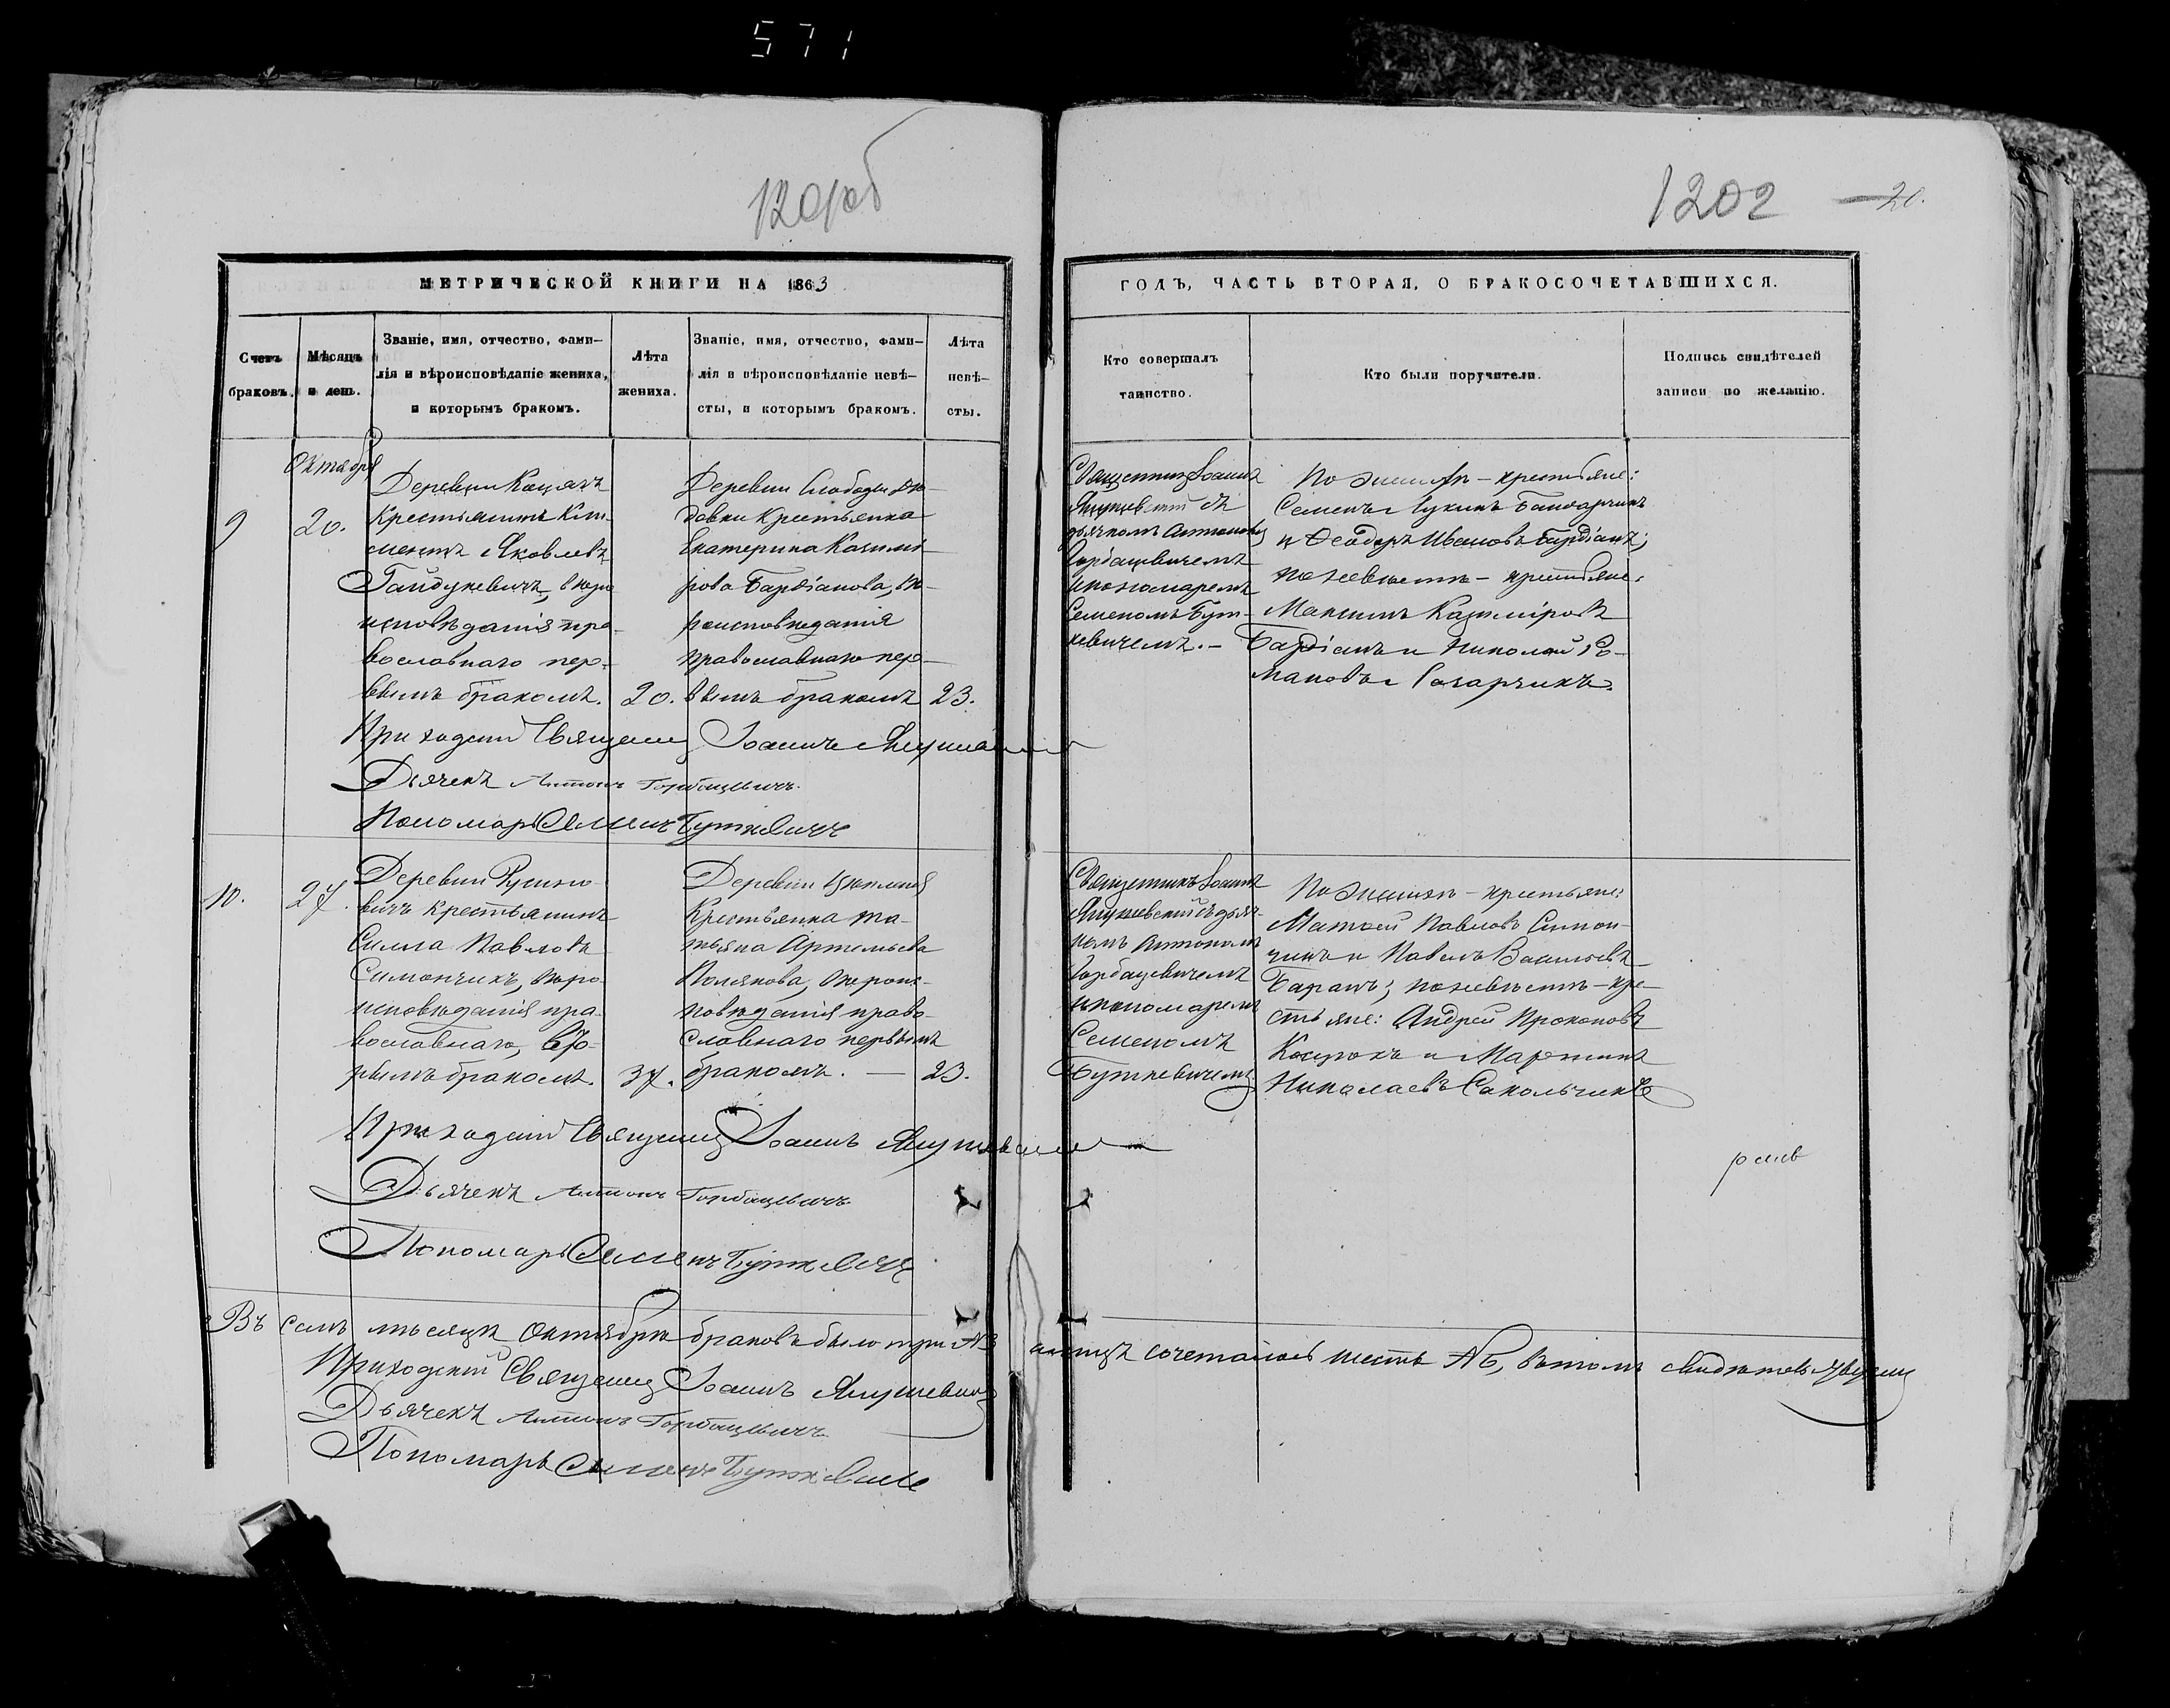 571
1201об
1202
20.
МЕТРИЧЕСКОЙ КНИГИ НА 1863
ГОДЪ, ЧАСТЬ ВТОРАЯ, О БРАКОСОЧЕТАВШИХСЯ.
Счетъ браковъ.
Мѣсяцъ и день.
Званіе, имя, отчество, фами-
лія и вѣроисповѣданіе жениха,
и которымъ бракомъ.
Лѣта
жениха.
Званіе, имя, отчество, фами-
лія и вѣроисповѣданіе невѣ-
сты, и которымъ бракомъ.
Лѣта
невѣ-
сты.
Кто совершалъ
таинство.
Кто были поручители.
Подпись свидѣтелей
записи по желанію.
Октября
9
20.
Деревни
Крестьянинъ Кли-
ментъ Яковлевъ
Гайдукевичъ, вѣро-
исповѣданія пра-
вославнаго пер-
вымъ бракомъ.
20.
Деревни Слободы
крестьянка
Екатерина Казимі-
рова Бардіанова, вѣ-
роисповѣданія
православнаго пер-
вымъ бракомъ
23.
Священникъ Іоаннъ
съ
дьячкомъ Антономъ
Горбацевичемъ
и пономаремъ
Семеномъ Бут-
кевичемъ.
По женихѣ - крестьяне:
Семенъ Лукинъ
и Ѳеодоръ Ивановъ Бардіанъ;
по невѣстѣ - крестьяне:
Максимъ Казиміровъ
Бардіанъ и Николай Ро-
мановъ
Приходскій Священникъ Іоаннъ
Дьячекъ Антонъ Горбацевичъ
Пономарь Семенъ Буткевичъ
10.
27.
Деревни Русино-
вичъ крестьянинъ
Сила Павловъ
Симончикъ, вѣро-
исповѣданія пра-
вославнаго, вто-
рымъ бракомъ.
37.
Деревни
Крестьянка Та-
тьяна Артемьева
Полякова, вѣроис-
повѣданія право-
славнаго первымъ
бракомъ. —
23.
Священникъ Іоаннъ
съ дьяч-
комъ Антономъ
Горбацевичемъ
и пономаремъ
Семеномъ
Буткевичемъ
По женихѣ - крестьяне:
Матѳей Павловъ Симон-
чикъ и Павелъ Васильевъ
Баранъ; по невѣстѣ - кре-
стьяне: Андрей Прокоповъ
и Мартинъ
Николаевъ Сакольчикъ
Приходскій Священникъ Іоаннъ
Дьячекъ Антонъ Горбацевичъ
Пономарь Семенъ Буткевичъ
Въ семъ мѣсяцѣ Октябрѣ браковъ было три №3 сочеталось шесть №6, въ томъ свидѣтельствуемъ
Приходскій Священникъ Іоаннъ
Дьячекъ Антонъ Горбацевичъ
Пономарь Семенъ Буткевичъ